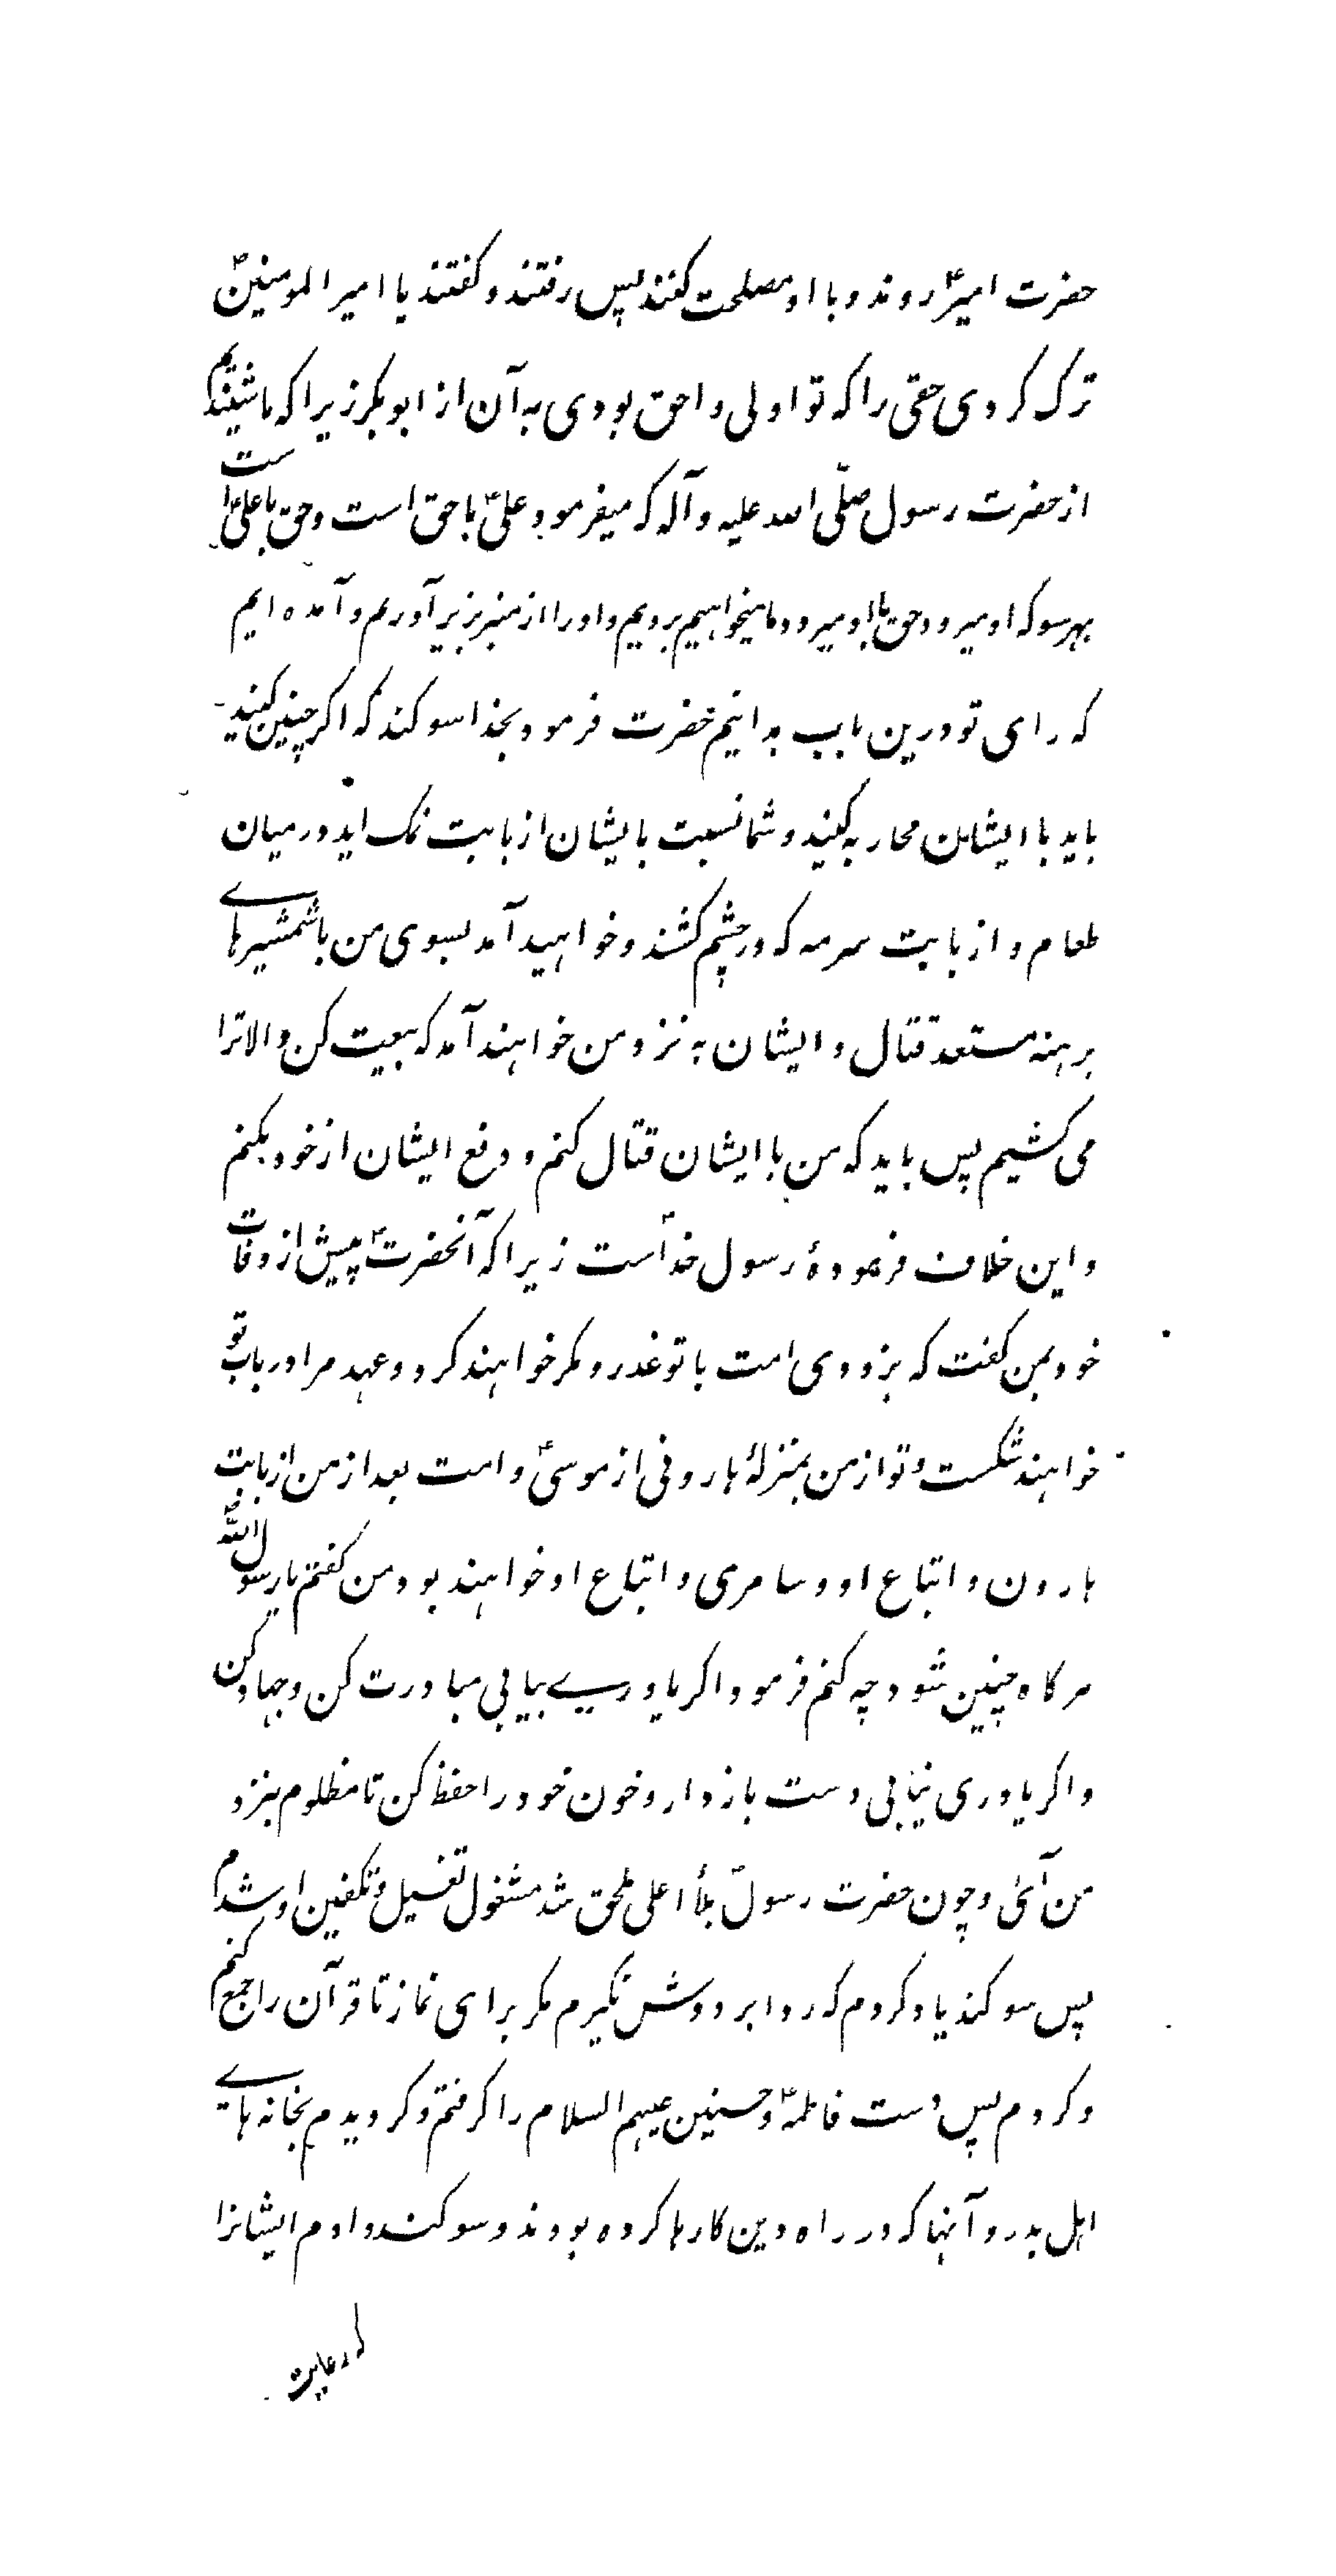 حضرت امیرؑ روند و با او مصلحت کنند پس رفتند و کفتند یا امیر المومنینؑ
ترک کردی حقی را که تو اولی و احق بودی به آن از ابوبکر زیرا که ما شنیدیم
از حضرت رسول صلّی الله علیه و آله که میفرمود علیؑ با حق است و حق با علیؑ است
بهر سو که او میرود حق با او میرود و ما میخواهیم برویم و او را از منبر بزیر آوریم و آمده ایم
که رای تو درین باب بدانیم حضرت فرمود بخدا سوکند که اکر چنین کنید
باید با ایشان محاربه کنید و شما نسبت بایشان از بابت نمک اید در میان
طعام و از بابت سرمه که در چشم کشند و خواهید آمد بسوی من با شمشیرهای
برهنه مستعد قتال و ایشان به نزد من خواهند آمد که بیعت کن و الا ترا
می کشیم پس باید که من با ایشان قتال کنم و دفع ایشان از خود بکنم
و این خلاف فرمودهٔ رسول خداست زیرا که آنحضرتؐ پیش از وفات
خود بمن کفت که بزودی امت با تو غدر و مکر خواهند کرد و عهد مرا در باب تو
خواهند شکست و تو از من بمنزلهٔ هارونی از موسیؑ و امت بعد از من از بابت
هارون و اتباع او و سامری و اتباع او خواهند بود من کفتم یا رسول اللهؐ
هرکاه چنین شود چه کنم فرمود اکر یاوری بیابی مبادرت کن و جهاد کن
و اکر یاوری نیابی دست بازدار و خون خود را حفظ کن تا مظلوم بنزد
من آئی و چون حضرت رسولؐ بملأ اعلی ملحق شد مشغول تغسیل و تکفین او شدم
پس سوکند یاد کردم که ردا بر دوش نکیرم مکر برای نماز تا قرآن را جمع کنم
و کردم پس دست فاطمهؑ و حسنین علیهم السلام را کرفتم و کردیدم بخانه های
اهل بدر و آنها که در راه دین کارها کرده بودند و سوکند دادم ایشانرا